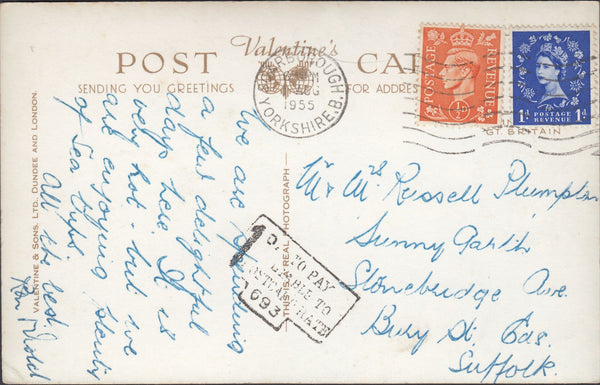 Valentine's
POST CARD
SENDING YOU GREETINGS
FOR ADDRESS
SCARBOROUGH
AUG
1955
YORKSHIRE.
POSTAGE REVENUE
½D
POSTAGE
REVENUE
1D 1D
GT. BRITAIN
We are spending
a few delightful
days here. It is
very hot - but we
are enjoying plenty
of Sea trips
All the best
VALENTINE & SONS, LTD., DUNDEE AND LONDON.
THIS IS A REAL PHOTOGRAPH
TO PAY
LIABLE TO
RATE
693
Mr & Mrs Russell Plumpton
Sunny Garth
Stonebridge Ave.
Bury St. Eds.
Suffolk.